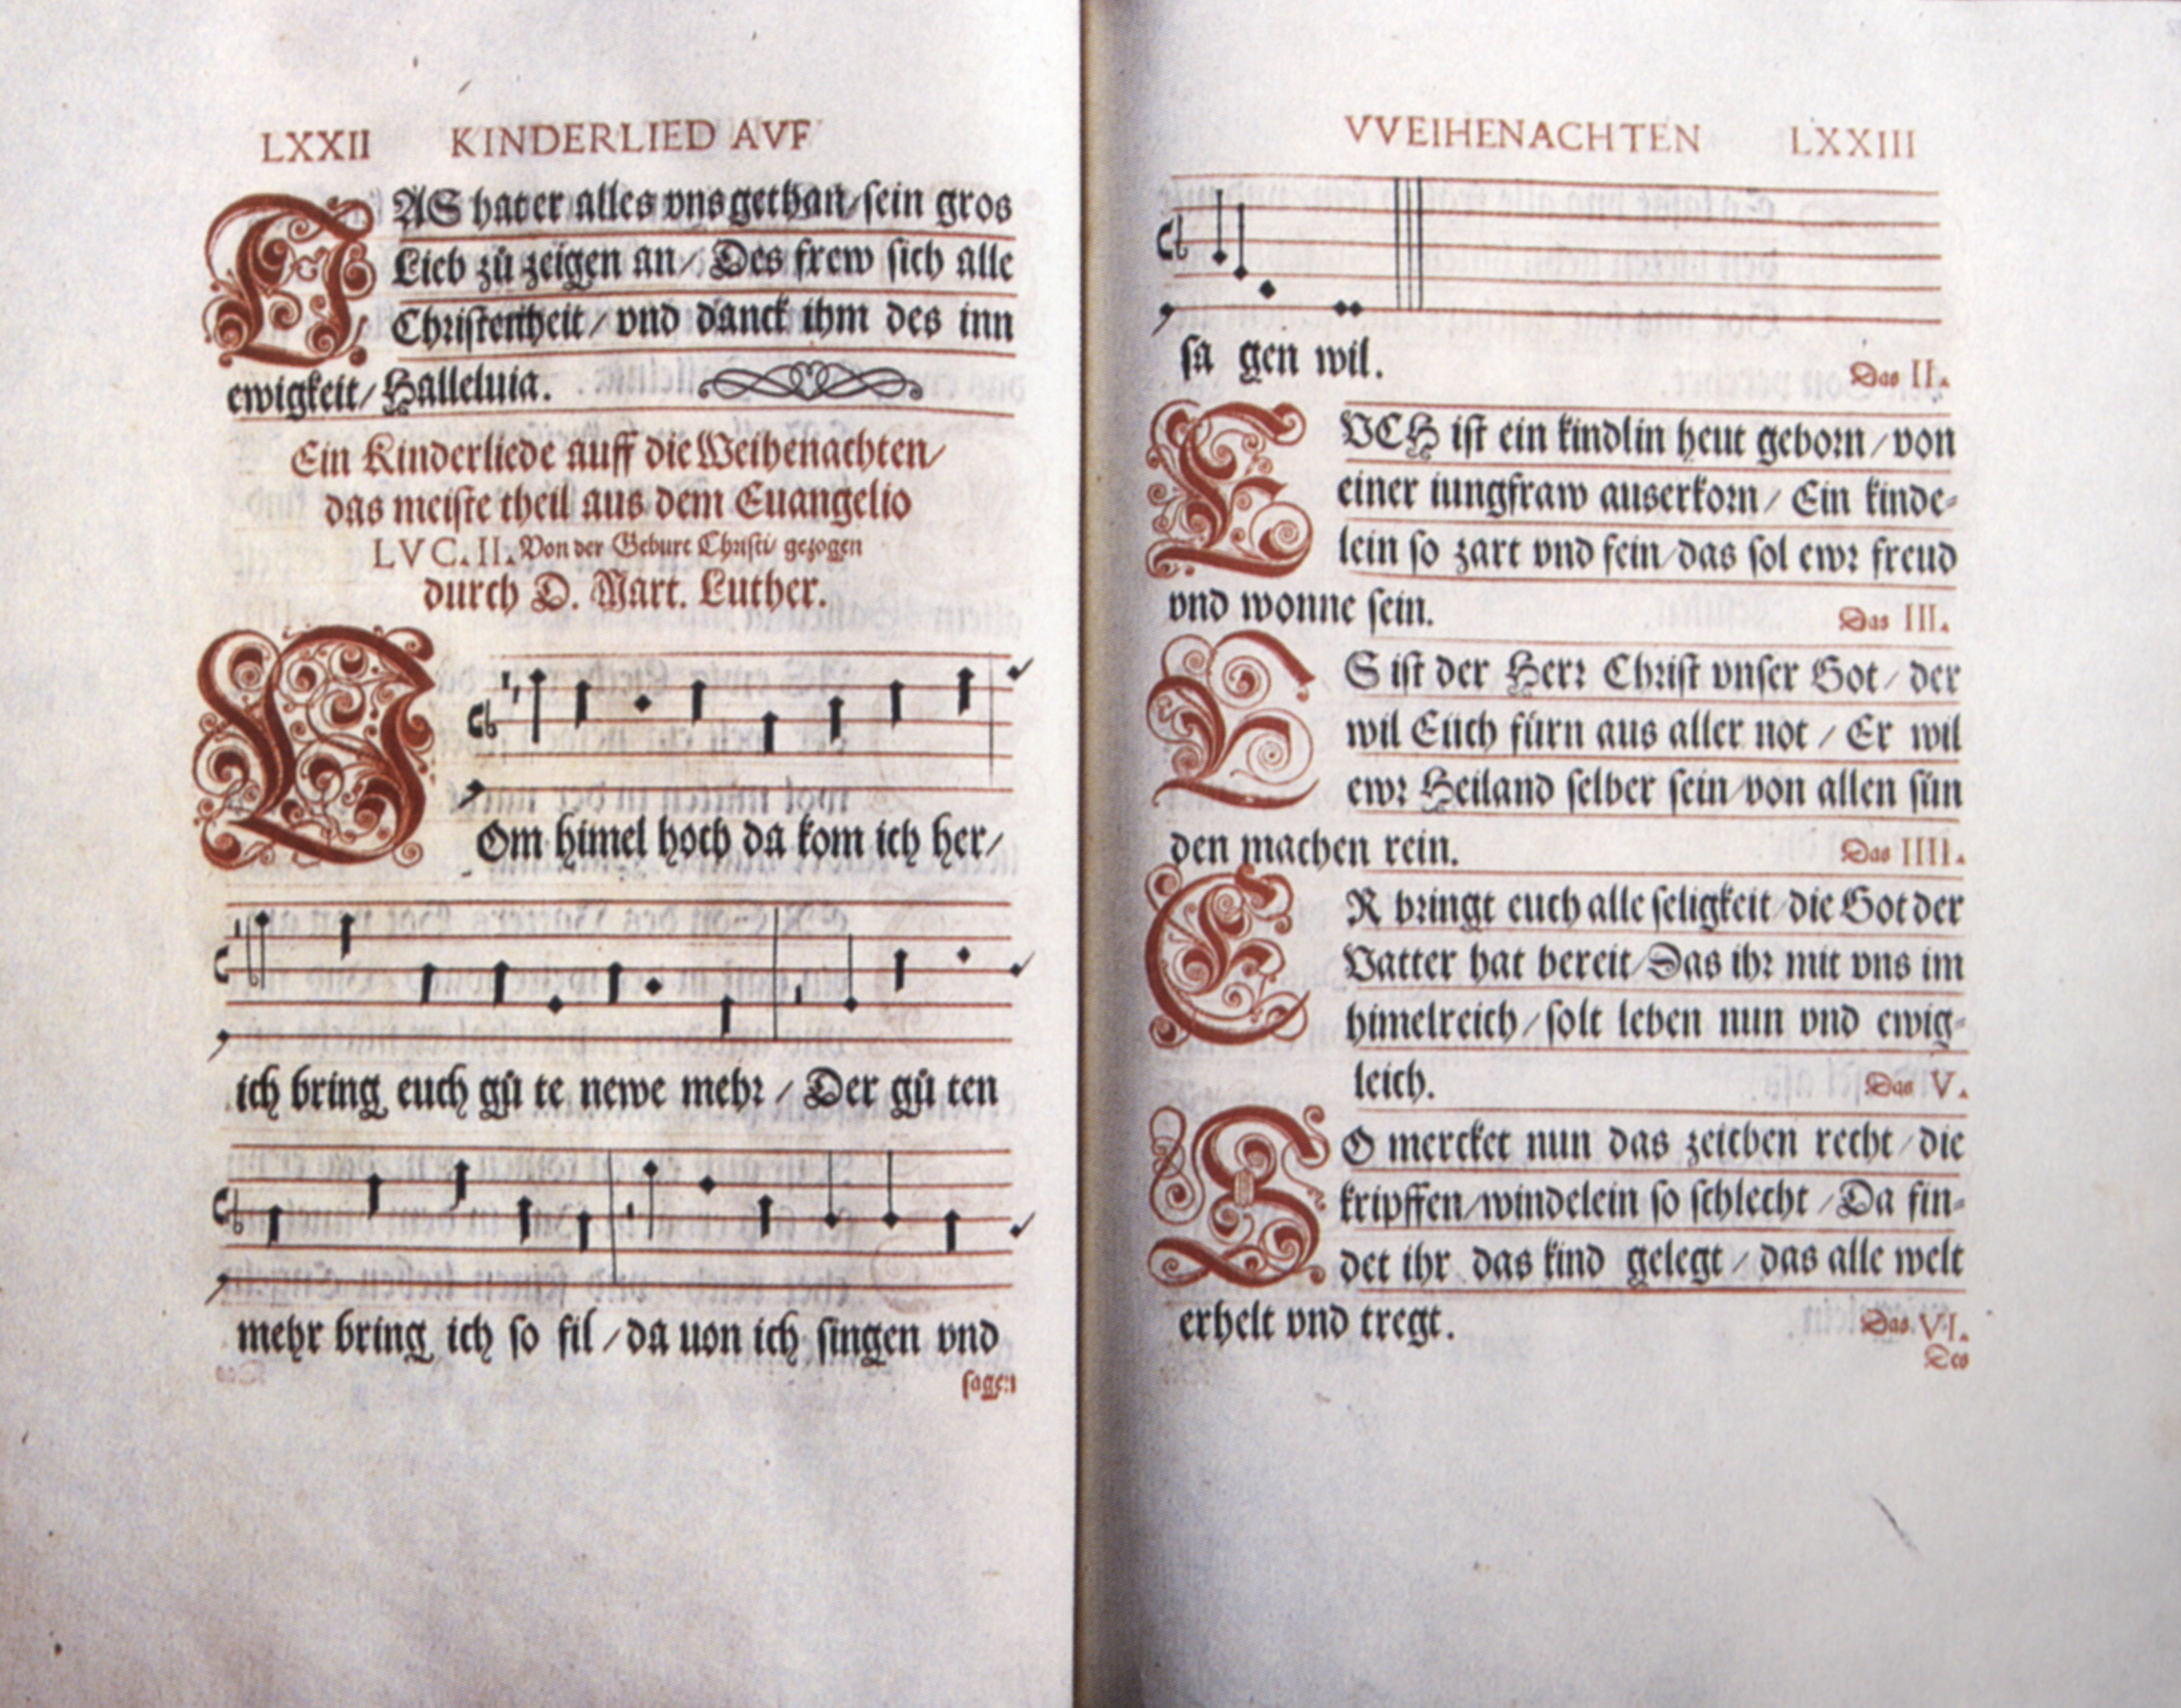 LXXII KINDERLIED AVF
DAS hat er alles vns gethan/sein gros
Lieb zů zeigen an/ Des frew sich alle
Christenheit/ vnd danck ihm des inn
ewigkeit/Halleluia.
Ein Kinderliede auff die Weihenachten/
das meiste theil aus dem Euangelio
LVC. II. Von der Geburt Christi/ gezogen
durch D. Mart. Luther.
VOm himel hoch da kom ich her/
ich bring euch gů te newe mehr/ Der gů ten
mehr bring ich so fil/da uon ich singen vnd
sagen
VVEIHENACHTEN LXXIII
sa gen wil.
Das II.
EVCH ist ein kindlin heut geborn/von
einer iungfraw auserkorn/ Ein kinde-
lein so zart vnd fein/das sol ewr freud
vnd wonne sein.
Das III.
ES ist der Herr Christ vnser Got/ der
wil Eüch fürn aus aller not/ Er wil
ewr Heiland selber sein/von allen sün
den machen rein.
Das IIII.
ER bringt euch alle seligkeit/die Got der
Vatter hat bereit/Das ihr mit vns im
himelreich/solt leben nun vnd ewig-
leich.
Das V.
SO mercket nun das zeichen recht/die
kripffen/windelein so schlecht/Da fin-
det ihr das kind gelegt/das alle welt
erhelt vnd tregt.
Das VI.
Des